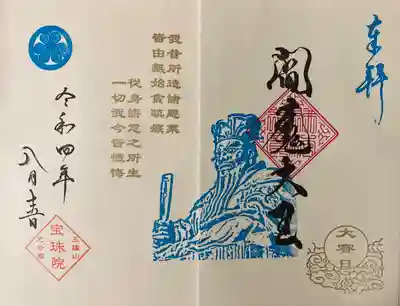 奉拝
閻魔大王
我昔所造諸惡業
皆由無始貪瞋癡
從身語意之所生
一切我今皆懺悔
令和四年
八月
三縁山
宝珠院